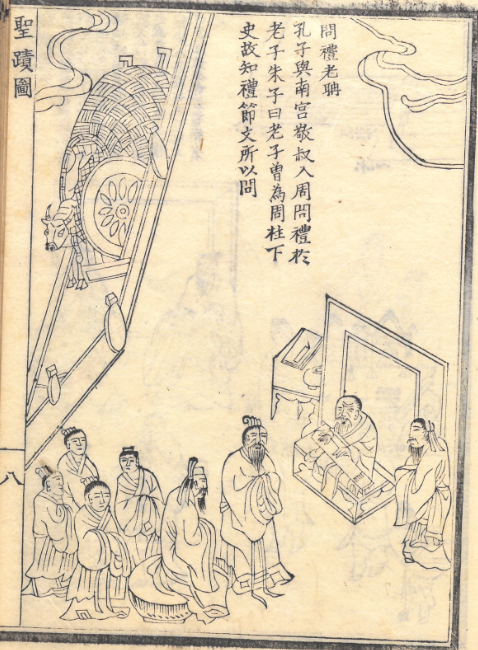 問禮老聃
孔子與南宮敬叔入周問禮於
老子朱子曰老子曾為周柱下
史故知禮節文所以問
聖蹟圖
八